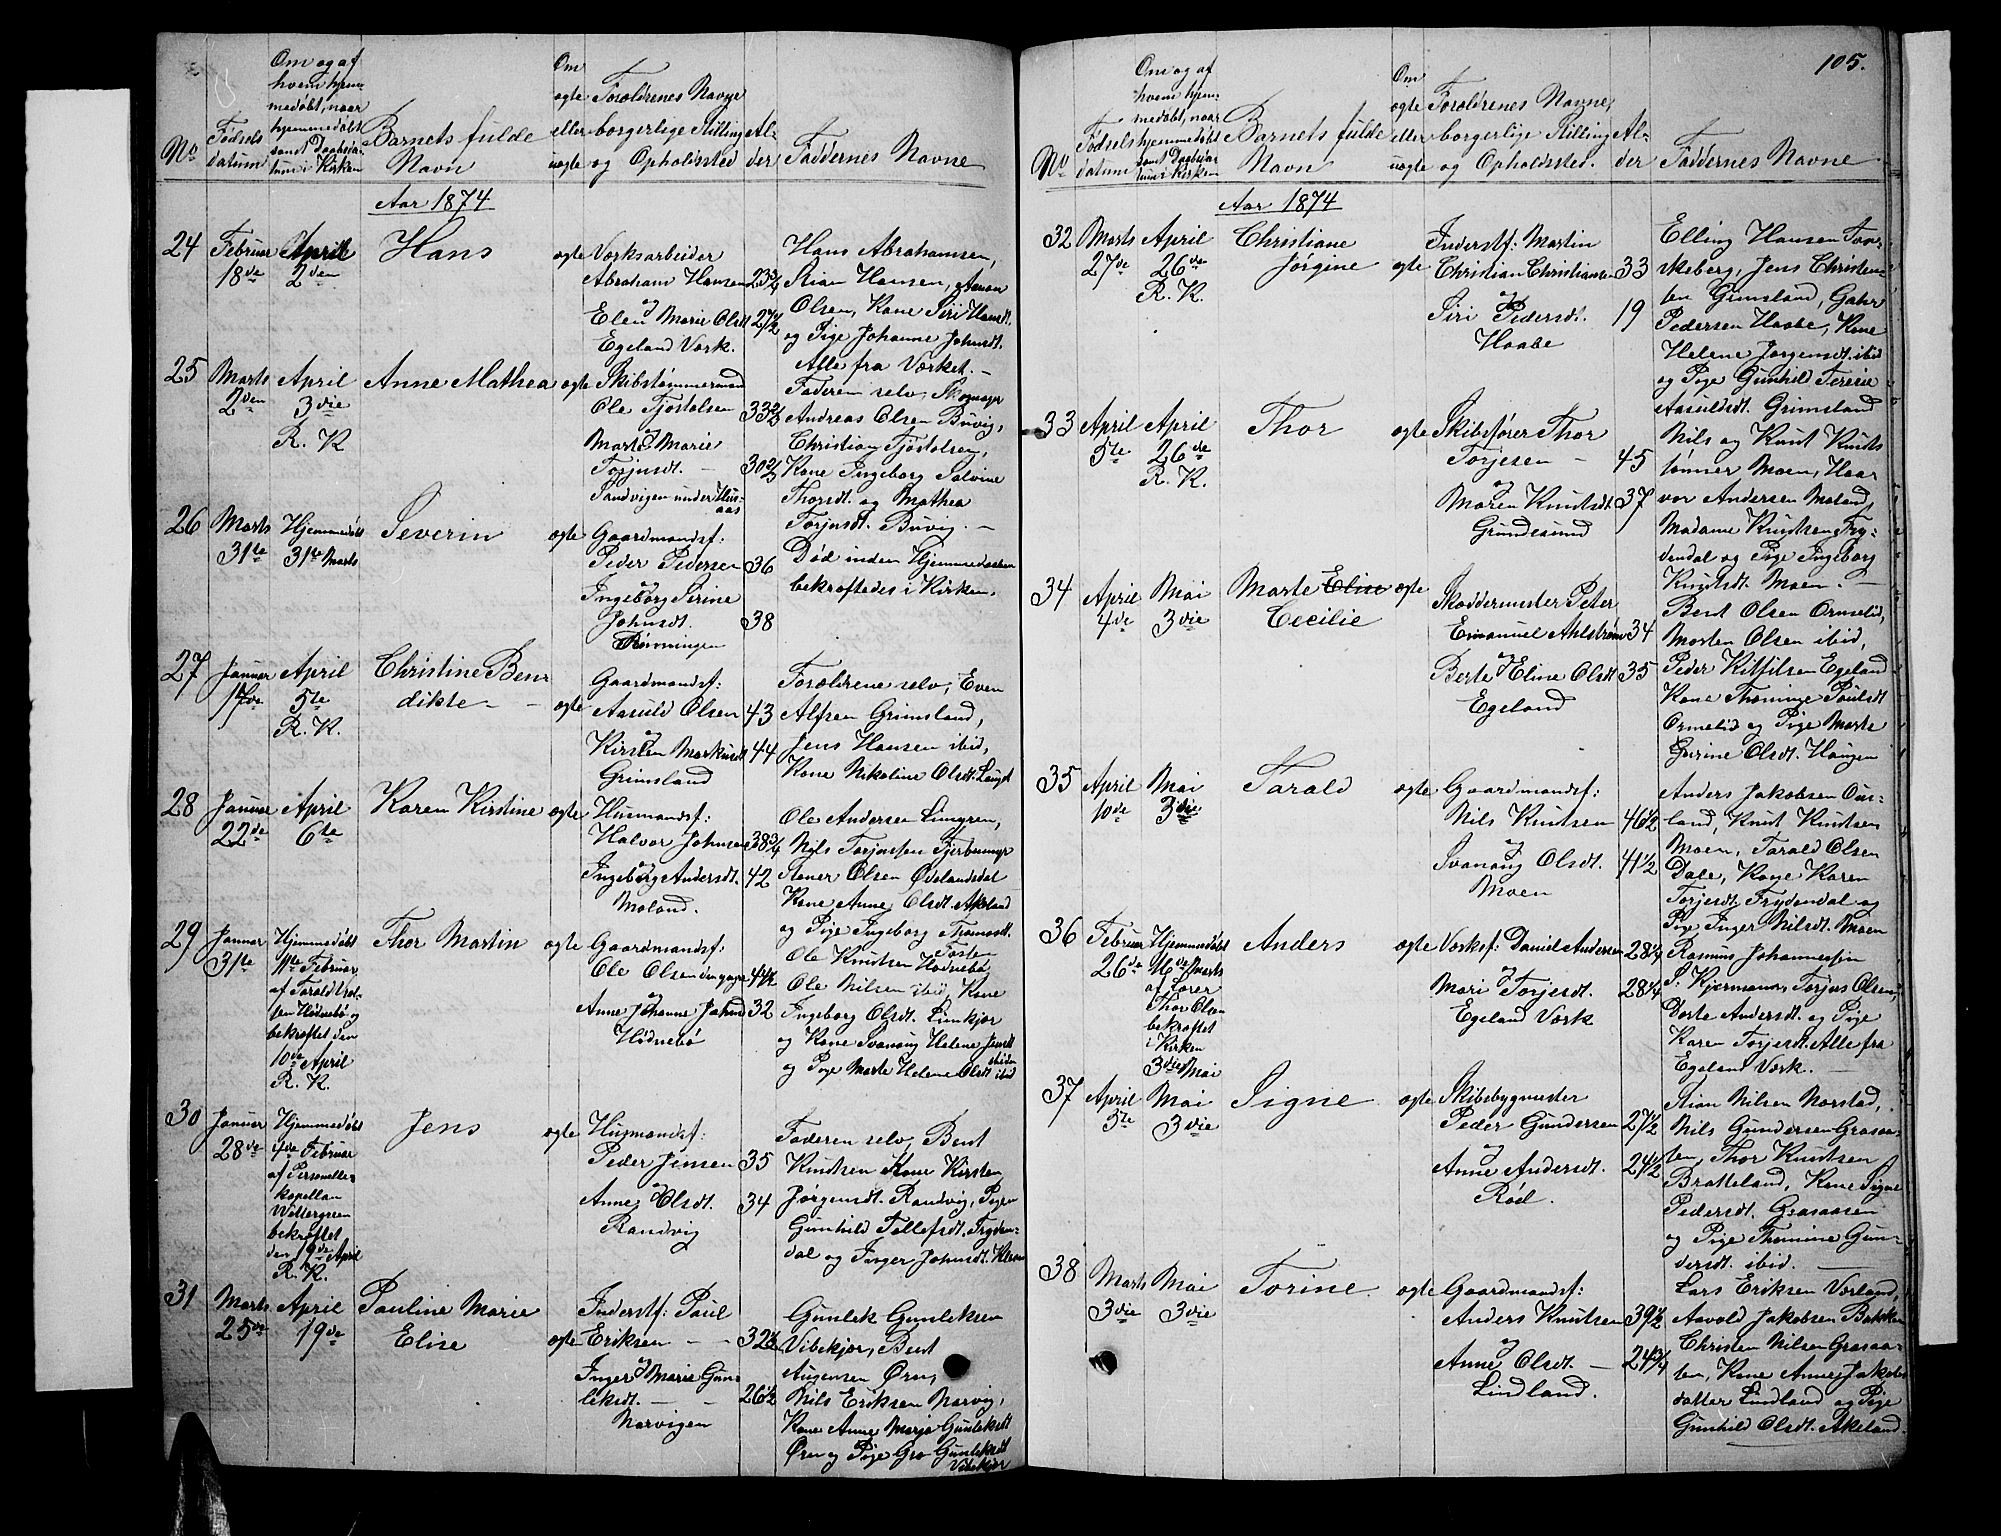 105.
Om og af
hvem hjem-
medøbt, naar
hjemmedøbt
samt Daabsda-
tum i Kirken
No
Fødsels
datum
Barnets fulde
Navn
Om
ægte
eller
uægte
Forældrenes Navne
borgerlige Stilling
og Opholdssted
Al-
der
Faddernes Navne
Aar 1874
24 Februar
18de
April
2den
Hans
ægte
Værksarbeider
Abraham Hansen 23 3/4
og
Elen Marie Olsdt 27 1/2
Egeland Værk.
Hans Abrahamsen,
Stian Hansen, Aanon
Olsen, Kone Siri Hansdt.
og Pige Johanne Johnsdt.
Alle fra Værket. –
25 Marts
2den
April
3die
R. K
Anne Mathea
ægte
Skibstømmermand
Ole Tjøstolsen 33 2/2
og
Marte Marie
Torjusdt. – 30 2/2
Sandvigen under Hus-
aas
Faderen selv, Skomager
Andreas Olsen Buvig,
Christian Tjøstolsen,
Kone Ingeborg Salvine
Thorsdt. og Mathea
Torjusdt. Buvig. –
26 Marts
31te
Hjemmedøbt
31te Marts
Severin
ægte
Gaardmandsf:
Peder Pedersen 36
og
Ingeborg Serine
Johnsdt. 38
Rønningen
Død inden Hjemmedaaben
bekræftedes i Kirken.
27 Januar
14de
April
5te
R. K.
Christine Ben-
dikte – –
ægte
Gaardmandsf:
Aasuld Olsen 43
og
Kirsten Markusdt 44
Grimsland
Forældrene selv, Even
Alfsen Grimsland,
Jens Hansen ibid,
Kone Nikoline Olsdt.
28 Januar
22de
April
6te
Karen Kirstine
ægte
Husmandsf:
Halvor Johnsen 38 3/4
og
Ingeborg Andersdt. 42
Moland.
Ole Andersen Limgren,
Nils Torjussen
Stener Olsen Ødelandsdal
Kone Anne Olsdt. Akeland
og Pige Ingeborg Thomasdt.
29 Januar
31te
Hjemmedøbt
11te Februar
af Tarald
Hødnebø og
bekræftet den
10de April
R. K.
Thor Martin
ægte
Gaardmandsf:
Ole Olsen den yngre 44 1/2
og
Anne Johanne Johnsd 32
Hødnebø
Ole Knudsen Hødnebø,
Ole Nilsen ibid, Kone
Ingeborg Olsdt. Lienkjær
og Kone Svanaug Helene Jensdt
ibidem
og Pige Marte Helene Olsdt ibid
30 Januar
28de
Hjemmedøbt
4de Februar
af Personelle-
kapellan
Wettergreen
bekræftet
den 19de April
R. K.
Jens
ægte
Husmandsf:
Peder Jensen 35
og
Anne Olsdt. 34
Randvig
Faderen selv, Bent
Knudsen Kone Kirsten
Jørgensdt. Randvig, Pigen
Gunhild Tellefsdt. Fryden-
dal og Inger Johnsdt.
31 Marts
25de
April
19de
Pauline Marie
Elise
ægte
Inderstf: Paul
Eriksen – – 32 1/2
og
Inger Marie Gun-
leksdt. – – 26 1/2
Narvigen
Gunlek Gunleksen
Vibekjær, Bent
Augensen Øren,
Nils Eriksen Narvig,
Kone Anne Marja Gunleksdt
Øren og Pige Gro Gunleksdt
Vibekjær
Om og af
hvem hjem-
medøbt, naar
hjemmedøbt
samt Daabsda-
tum i Kirken
No
Fødsels
datum
Barnets fulde
Navn
Om
ægte
eller
uægte
Forældrenes Navne,
borgerlige Stilling
og Opholdssted.
Al-
der
Faddernes Navne
Aar 1874
32 Marts
27de
April
26de
R. K.
Christiane
Jørgine
ægte
Inderstf: Martin
Christian Christiansen 33
og
Siri Pedersdt. 19
Haabe
Elling Hansen
Jens Christen-
sen Grimsland,
Pedersen Haabe, Kone
Helene Jørgensdt. ibid
og Pige Gunhild Terese
Aasuldsdt. Grimsland
33 April
5te
April
26de
R. K.
Thor
ægte
Skibsfører Thor
Torjesen – 45
og
Maren Knudsdt 37
Grundesund
Nils og Knut Knuts
sønner Moen, Haar
vor Andersen Moland,
Madame Knudsen Fry-
dendal og Pige Ingeborg
Knudsdt. Moen. –
34 April
4de
Mai
3die
Marte Elise
Cecilie
ægte
Skæddermester Peter
Emanuel Ahlstrøm 34
og
Berte Eline Olsdt 35
Egeland
Bent Olsen Ormelid,
Morten Olsen ibid,
Peder Kittilsen Egeland
Kone Thomine Poulsdt
Ormelid og Pige Marte
Gurine Olsdt. Haugen
35 April
10de
Mai
3die
Tarald
ægte
Gaardmandsf:
Nils Knutsen 46 1/2
og
Svanaug Olsdt. 41 1/2
Moen
Anders Jakobsen Ous-
land, Knut Knudsen
Moen, Tarald Olsen
Dale, Kone Karen
Torjesdt. Frydendal og
Pige Inger Nilsdt. Moen
36 Februar
26de
Hjemmedøbt
16de Marts
af Lærer
Thor Olsen
bekræftet
i Kirken
3die Mai
Anders
ægte
Værksf: Daniel Andersen 28 1/4
og
Mari Torjesdt. 28 1/4
Egeland Værk
Rasmus Johannessen
S. Kjørmann, Torjus Olsen,
Dorte Andersdt. og Pige
Karen Torjesdt. Alle fra
Egeland Værk. –
37 April
5te
Mai
3die
Signe
ægte
Skibsbygmester
Peder Gundersen 27 1/2
og
Anne Andersdt. 24 1/2
Rød.
Stian Nilsen Narstad,
Nils Gundersen Grasaa-
sen, Thor Knudsen
Bratteland, Kone Signe
Pedersdt. Grasaasen
og Pige Thomine Gun-
dersdt. ibid. –
38 Marts
3die
Mai
3die
Torine
ægte
Gaardmandsf:
Anders Knutsen 39 1/2
og
Anne Olsdt. – 24 3/4
Lindland.
Lars Eriksen Vorland,
Aavold Jakobsen Bakken
Christen Nilsen Grasaa-
sen, Kone Anne Jakobs-
datter Lindland og Pige
Gunhild Olsdt. Akeland.